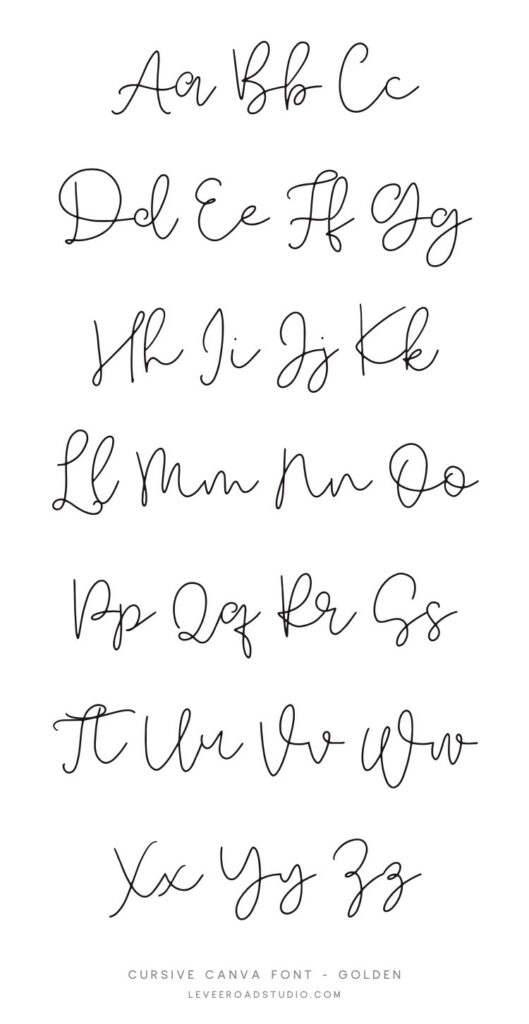 Aa Bb Cc
Dd Ee Ff Gg
Hh Ii Jj Kk
Ll Mm Nn Oo
Pp Qq Rr Ss
Tt Uu Vv Ww
Xx Yy Zz
CURSIVE CANVA FONT - GOLDEN
LEVEEROADSTUDIO.COM